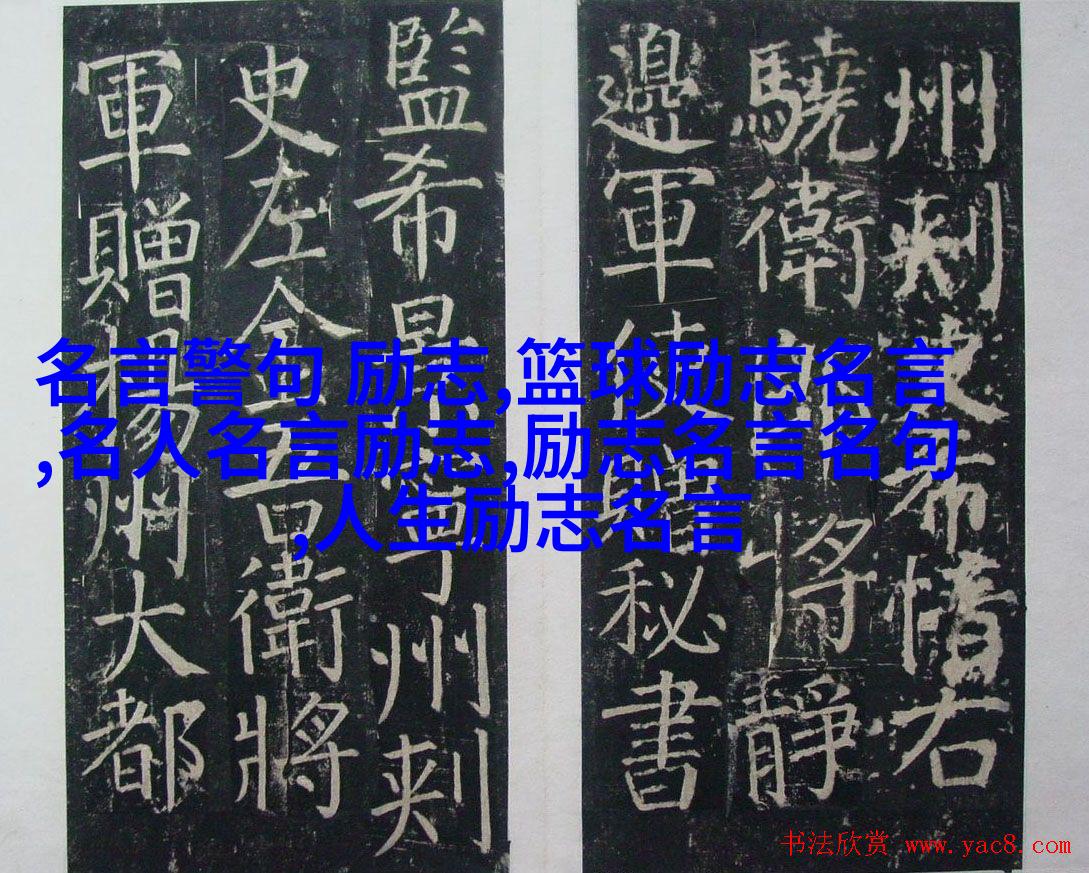 州刺史希右
驍衛將靜
邊軍使贈秘書
監希景寧州刺
史左金吾衛將
軍贈揚州大都
名言警句 励志,篮球励志名言
,名人名言励志,励志名言名句
,人生励志名言
书法欣赏 www.yac8.com